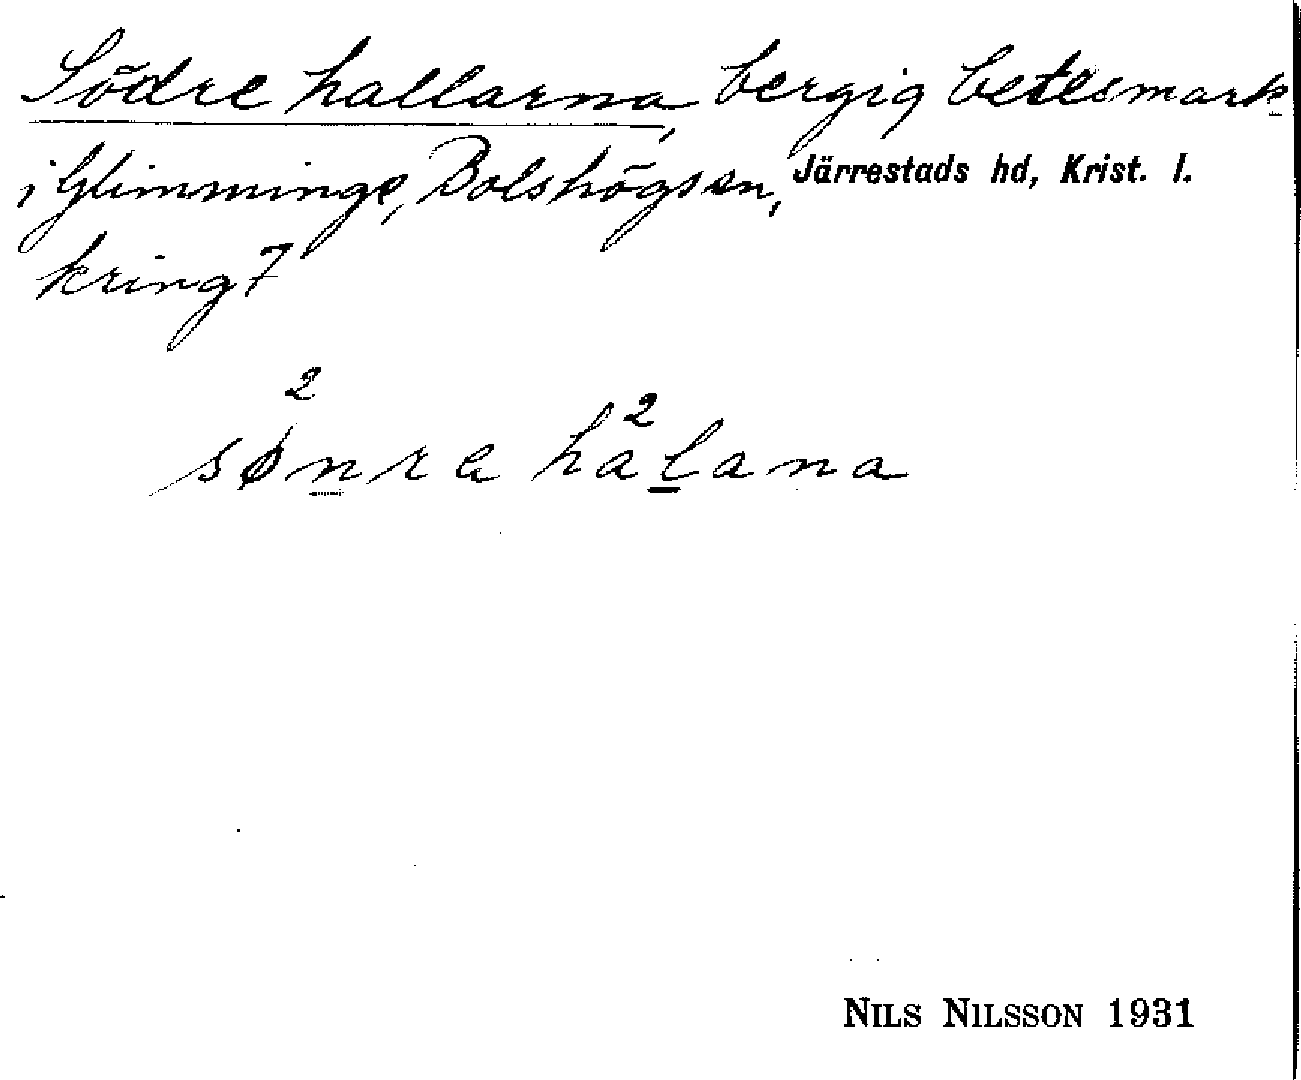 Södre hallarna, bergig betesmark
i Glimminge, Bolshögs sn, Järrestads hd, Krist. l.
kring 7
sø²nra ha²lana
NILS NILSSON 1931